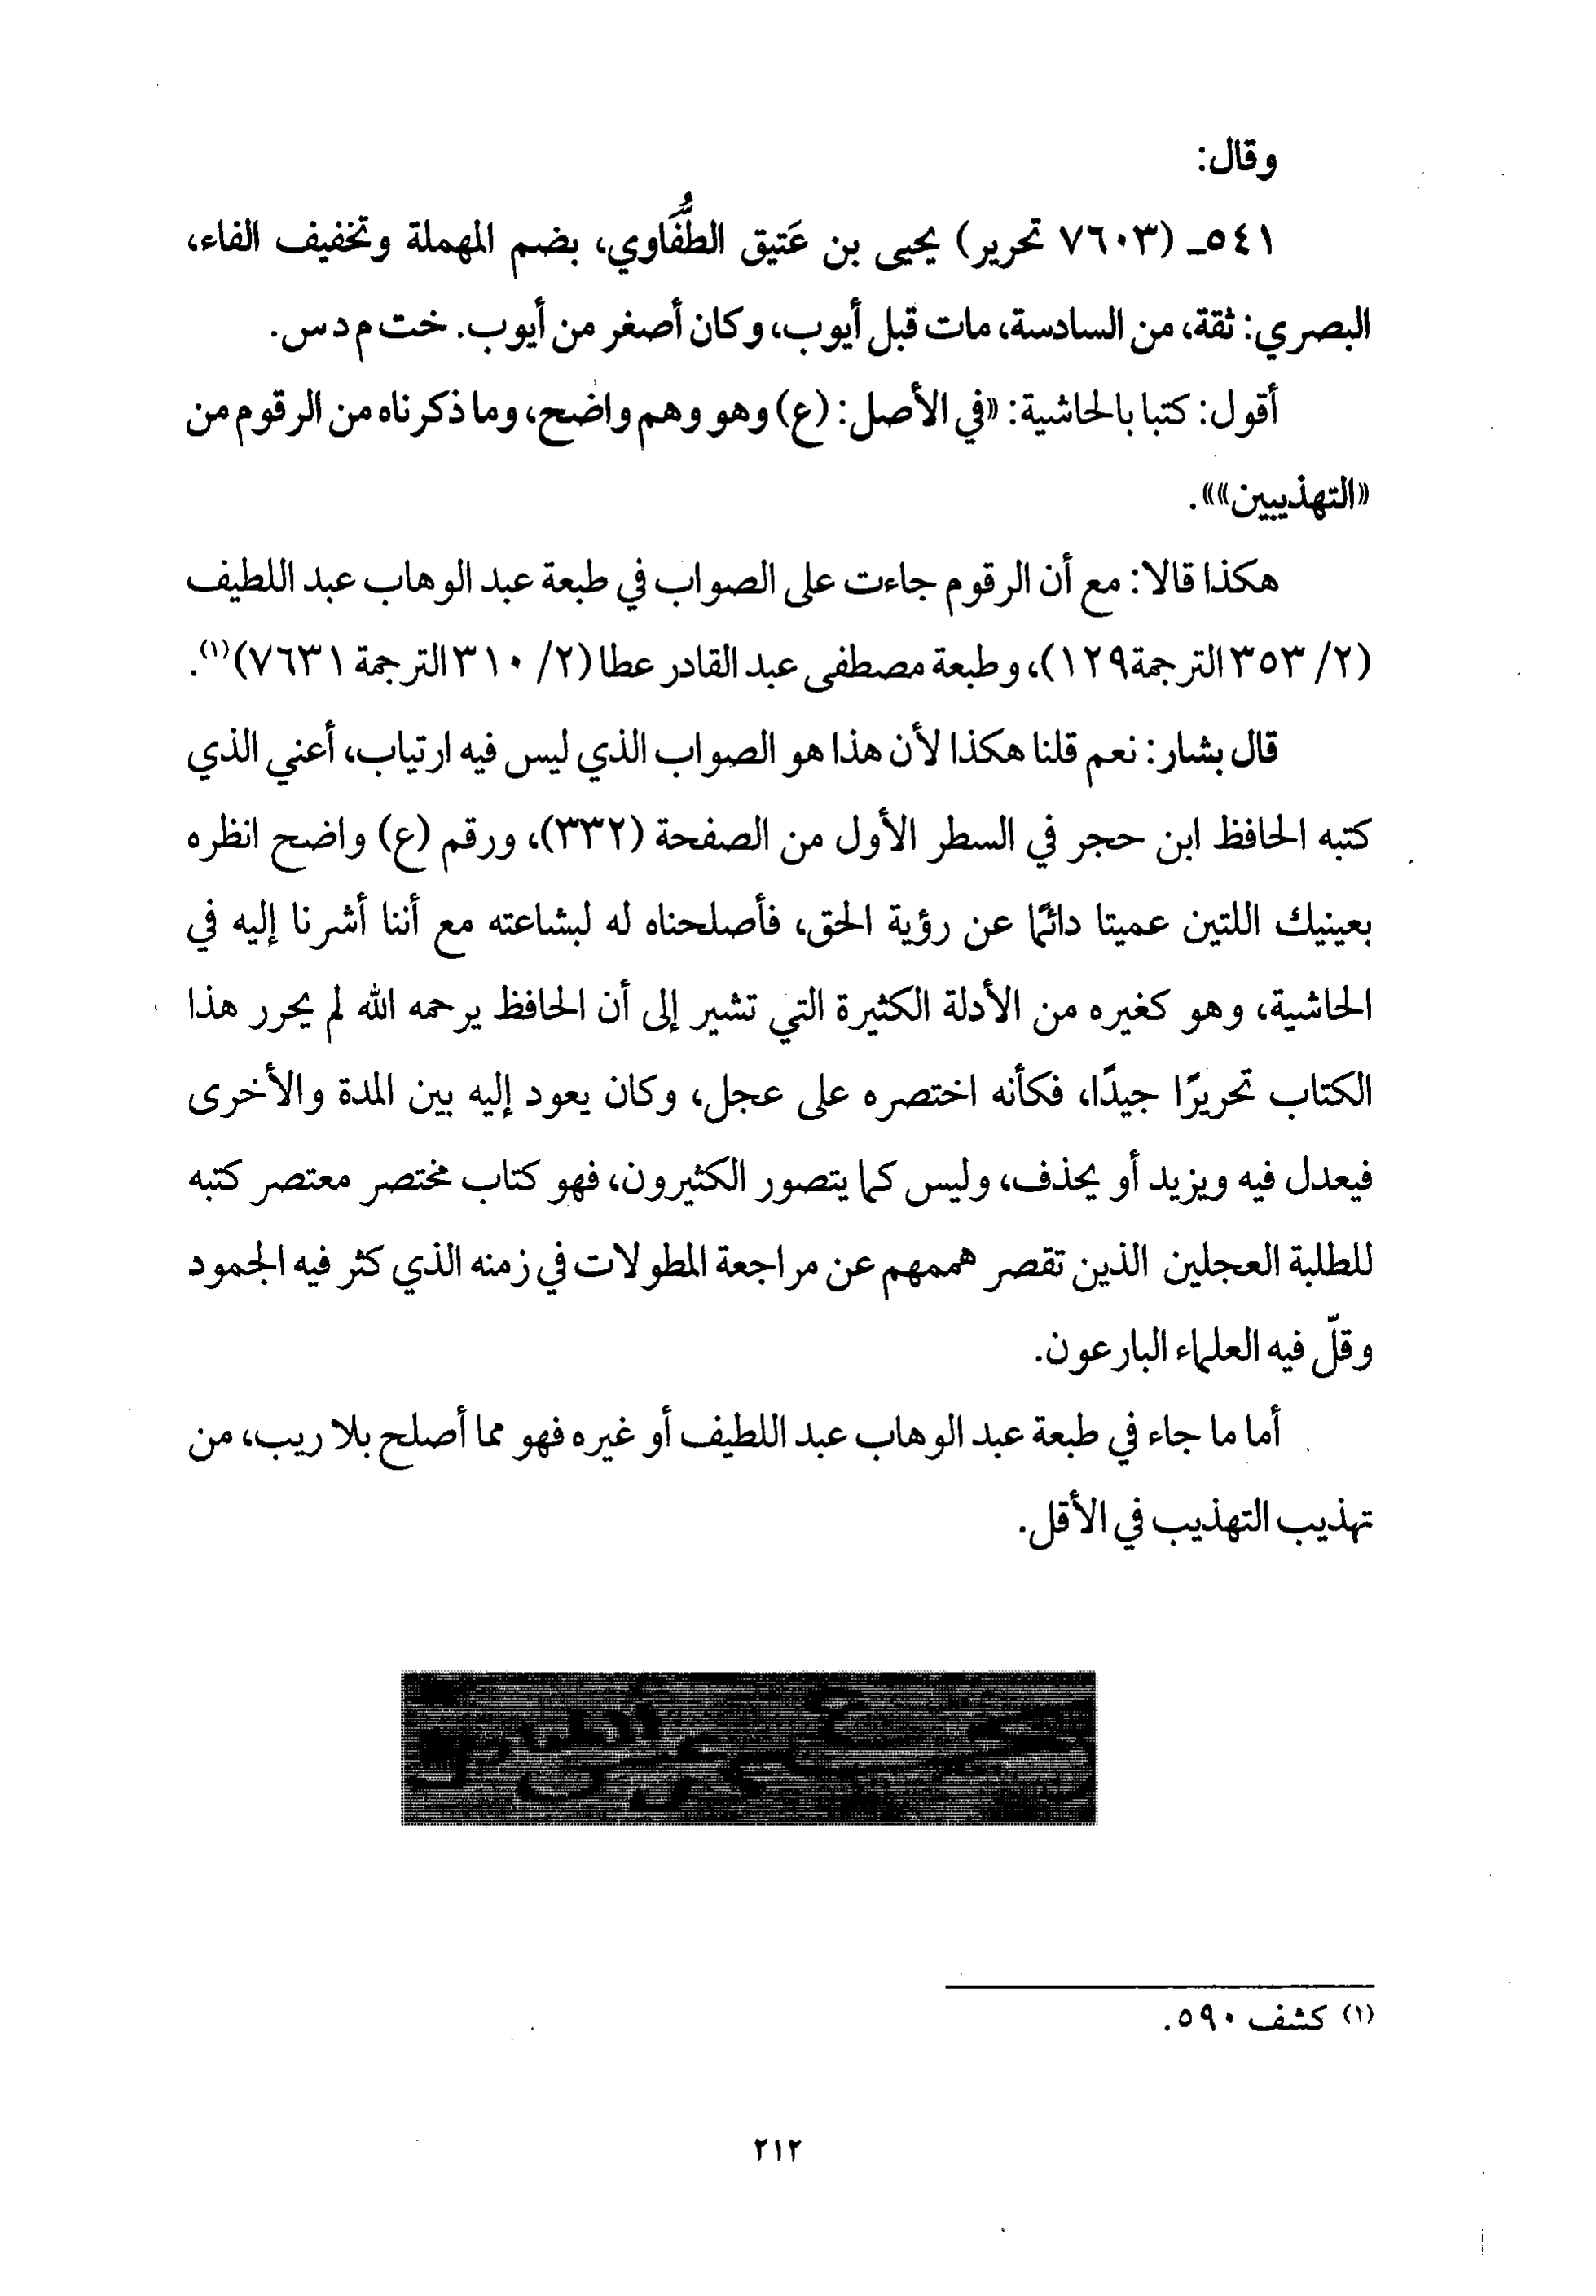 وقال:
٥٤١ـ (٧٦٠٣ تحرير) يحيى بن عَتيق الطُّفَاوي، بضم المهملة وتخفيف الفاء،
البصري: ثقة، من السادسة، مات قبل أيوب، وكان أصغر من أيوب. خت م د س.
أقول: كتبا بالحاشية: «في الأصل: (ع) وهو وهم واضح، وما ذكرناه من الرقوم من
«التهذيبين»».
هكذا قالا: مع أن الرقوم جاءت على الصواب في طبعة عبد الوهاب عبد اللطيف
(٢/ ٣٥٣ الترجمة ١٢٩)، وطبعة مصطفى عبد القادر عطا (٢/ ٣١٠ الترجمة ٧٦٣١)(١).
قال بشار: نعم قلنا هكذا لأن هذا هو الصواب الذي ليس فيه ارتياب، أعني الذي
كتبه الحافظ ابن حجر في السطر الأول من الصفحة (٣٣٢)، ورقم (ع) واضح انظره
بعينيك اللتين عميتا دائمًا عن رؤية الحق، فأصلحناه له لبشاعته مع أننا أشرنا إليه في
الحاشية، وهو كغيره من الأدلة الكثيرة التي تشير إلى أن الحافظ يرحمه الله لم يحرر هذا
الكتاب تحريرًا جيدًا، فكأنه اختصره على عجل، وكان يعود إليه بين المدة والأخرى
فيعدل فيه ويزيد أو يحذف، وليس كما يتصور الكثيرون، فهو كتاب مختصر معتصر كتبه
للطلبة العجلين الذين تقصر هممهم عن مراجعة المطولات في زمنه الذي كثر فيه الجمود
وقلّ فيه العلماء البارعون.
أما ما جاء في طبعة عبد الوهاب عبد اللطيف أو غيره فهو مما أصلح بلا ريب، من
تهذيب التهذيب في الأقل.
(١) كشف ٥٩٠.
٢١٢